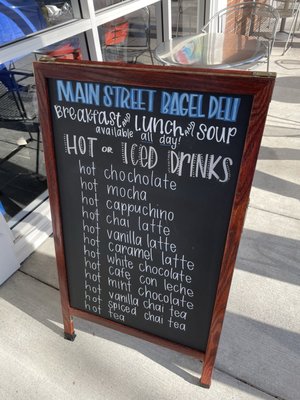 MAIN STREET BAGEL DELI
BREAKFAST AND LUNCH AND SOUP
available all day!
HOT OR ICED DRINKS
hot chocholate
hot mocha
hot cappuchino
hot chai latte
hot vanilla latte
hot caramel latte
hot white chocolate
hot cafe con leche
hot mint chocolate
hot vanilla chai tea
hot spiced chai tea
hot tea